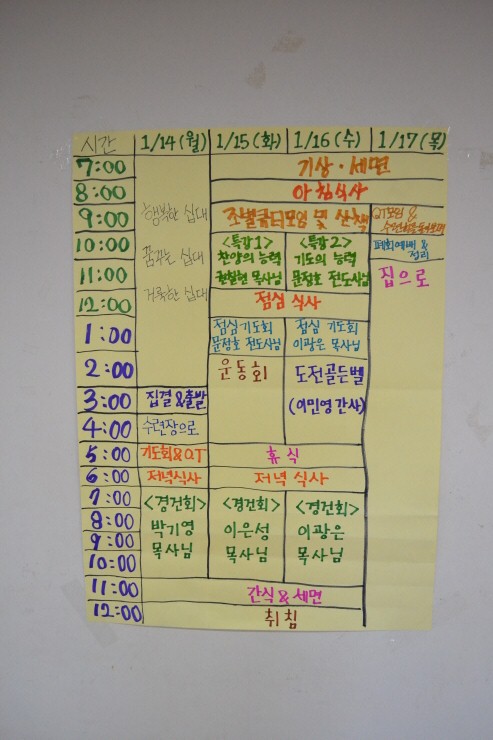 시간 1/14(월) 1/15(화) 1/16(수) 1/17(목)
7:00 기상·세면
8:00 아침식사
9:00 행복한 십대 조별큐티모임 및 산책 QT모임 &
10:00 꿈꾸는 십대 <특강1> <특강2> 폐회예배 &
찬양의 능력 기도의 능력 정리
11:00 거룩한 십대 목사님 문정호 전도사님 집으로
12:00 점심 식사
1:00 점심기도회 점심 기도회
문정호 전도사님 이광은 목사님
2:00 운동회 도전골든벨
3:00 집결&출발 (이민영간사)
4:00 수련장으로
5:00 기도회&QT 휴식
6:00 저녁식사 저녁 식사
7:00 <경건회> <경건회> <경건회>
8:00 박기영 이은성 이광은
9:00
목사님 목사님 목사님
10:00
11:00 간식&세면
12:00 취침